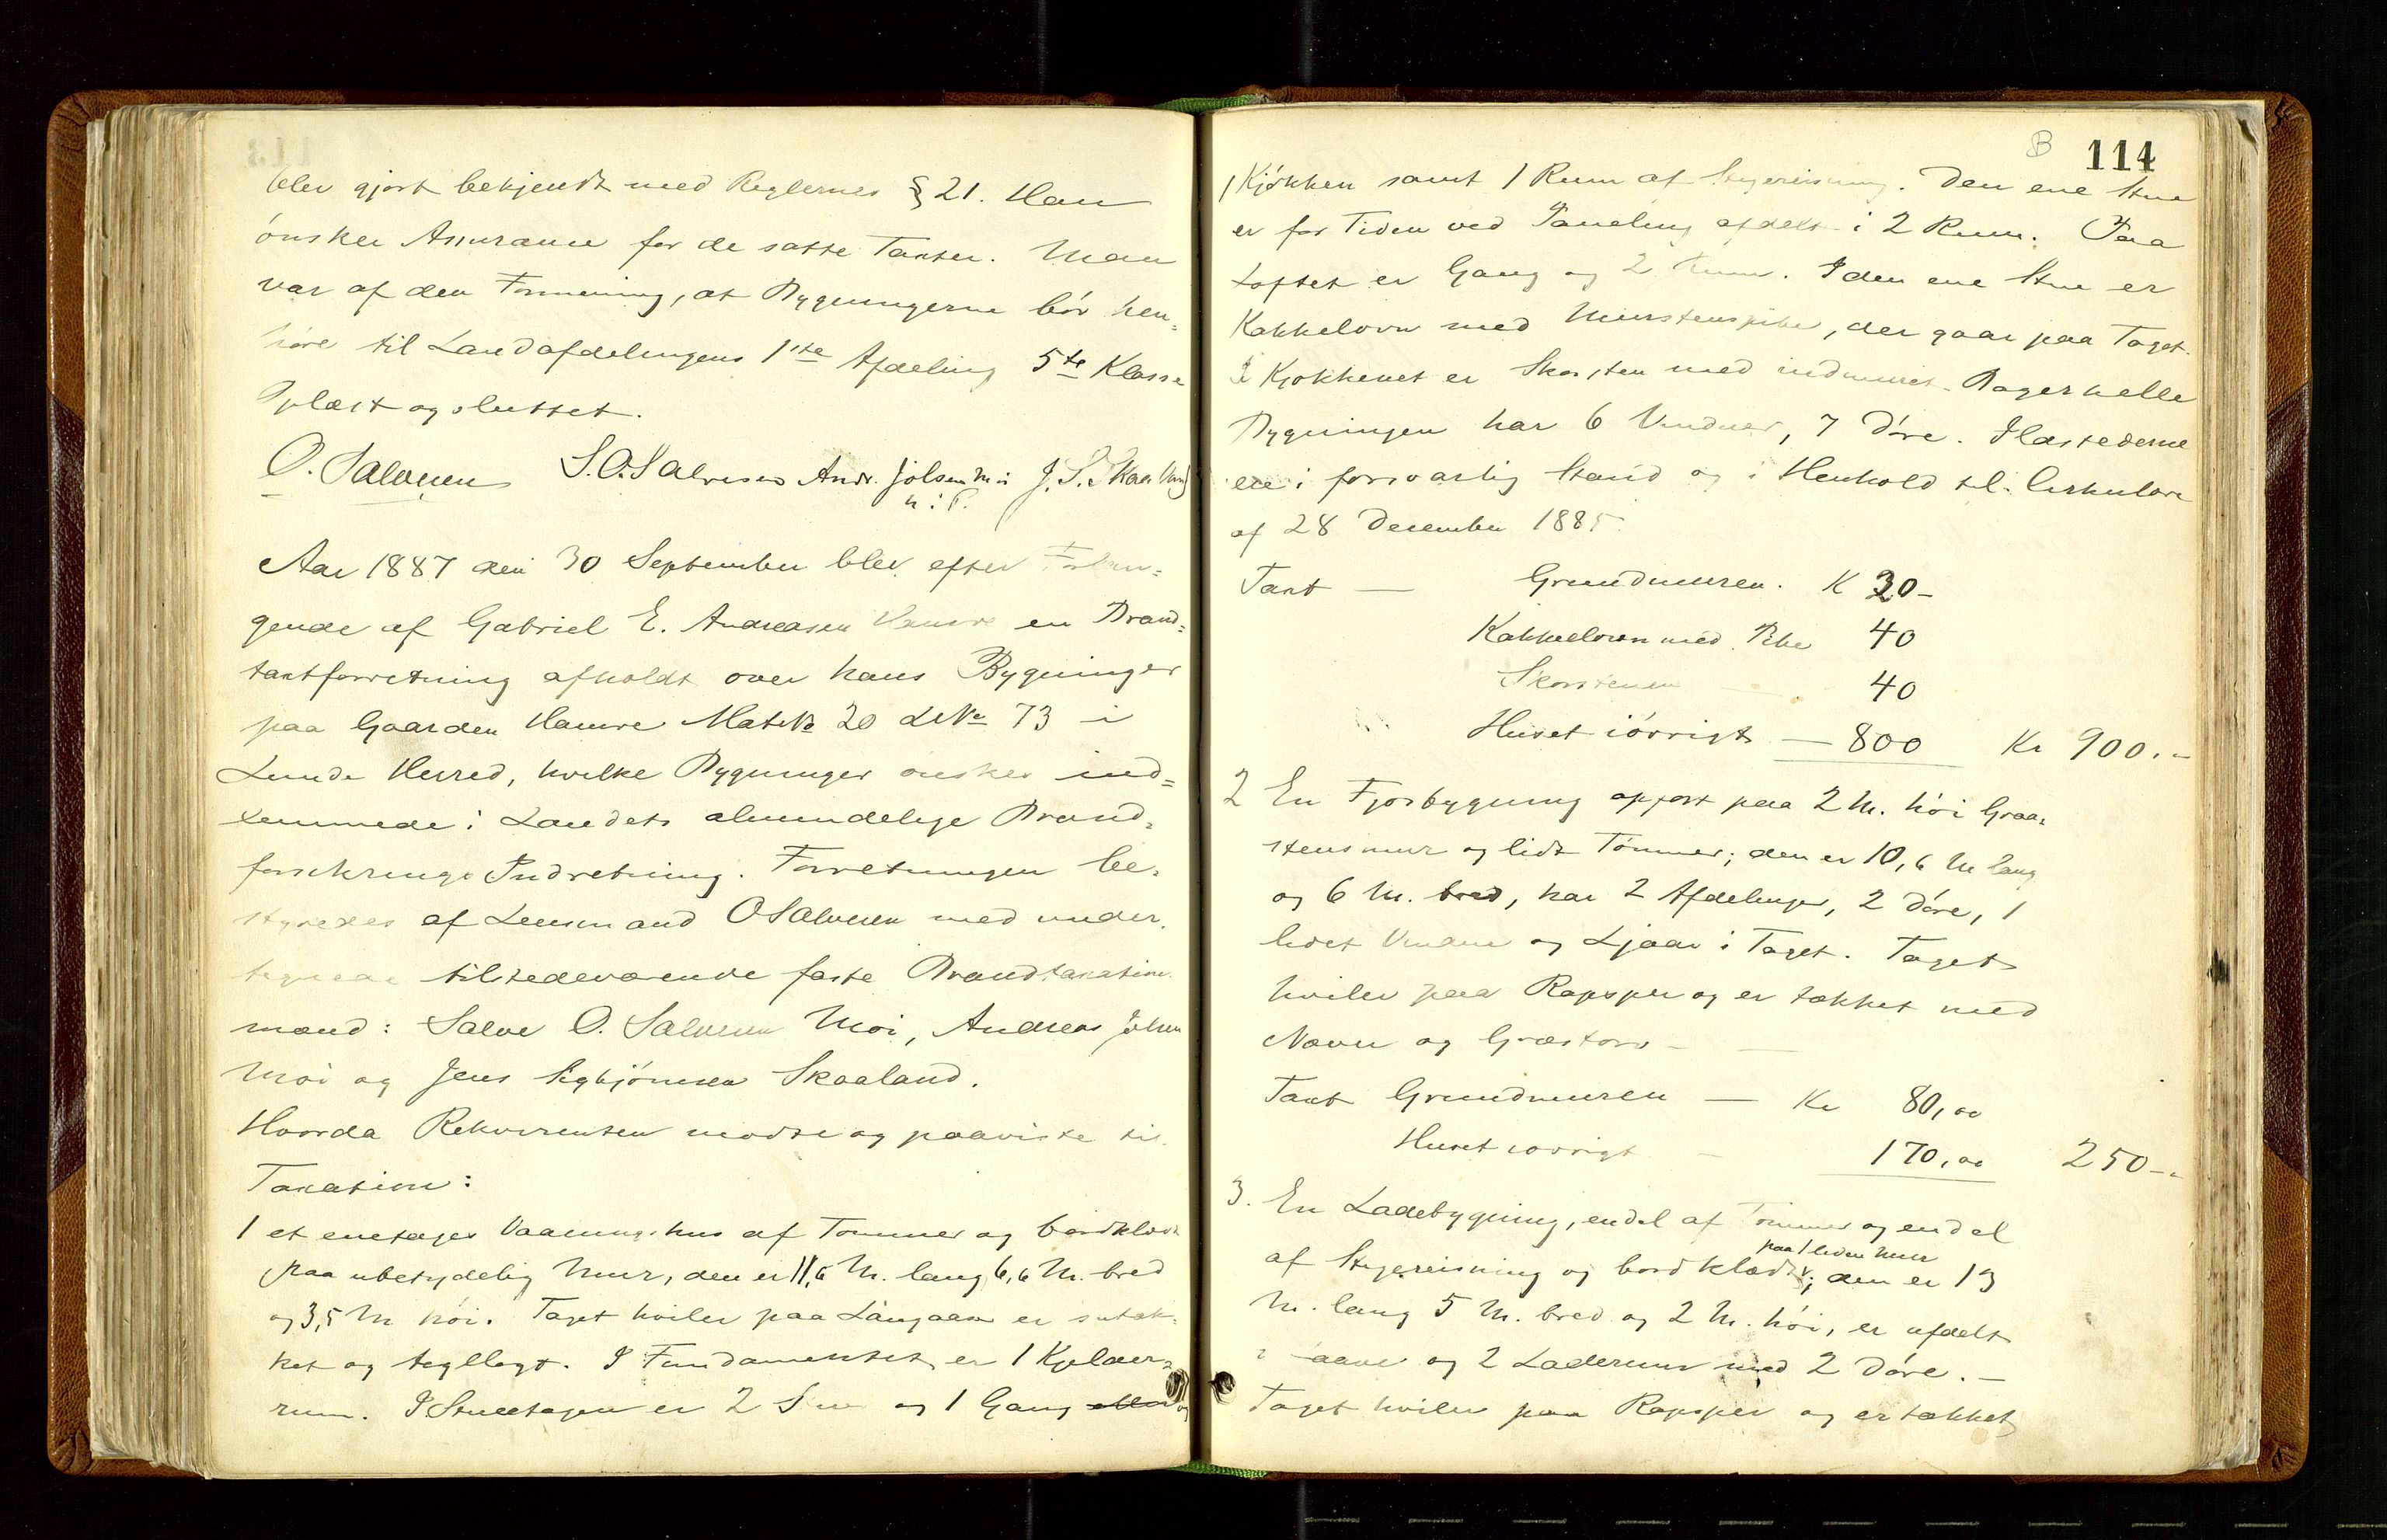 blev gjort bekjendt med Reglernes § 21. Han
ønsker Assurance for de satte Taxter. Man
var af den Formening, at Bygningerne bør hen-
høre til Landafdelingens 1ste Afdeling 5te Klasse
Oplæst og sluttet.
O. Salvesen S. O. Salvesen Andr. Jolsen Moi J. S. Skaaland
m. i. P.
Aar 1887 den 30 September blev efter Forlan-
gende af Gabriel E. Andreasen Hamre en Brand-
taxtforretning afholdt over hans Bygninger
paa Gaarden Hamre Mat№ 20 L№ 73 i
Lunde Herred, hvilke Bygninger ønskes ind-
lemmede i Landets almindelige Brand-
forsikrings Indretning. Forretningen be-
styredes af Lensmand O Salvesen med under-
tegnede tilstedeværende faste Brandtaxations
mænd: Salve O. Salvesen Moi, Andreas Jolsen
Moi og Jens Sigbjørnsen Skaaland.
Hvorda Rekvirenten mødte og paaviste til
Taxation:
1 et enetages Vaaningshus af Tømmer og bordklædt
paa ubetydelig Mur, den er 11,6 M. lang 6,6 M. bred
og 3,5 M høi. Taget hviler paa Langaase er sutæk-
ket og tegllagt. I Fundamentet er 1 Kjelder-
rum. I Stuetagen er 2 Stuer og 1 Gang og
B 114
1 Kjøkken samt 1 Rum af Stegereisning. Den ene Stue
er for Tiden ved Paneling afdelt i 2 Rum. Paa
Loftet er Gang og 2 Rum. I den ene Stue er
Kakkelovn med Murstenspibe, der gaar paa Taget.
I Kjøkkenet er Skorsten med indmuret Bagerhelle
Bygningen har 6 Vinduer, 7 Døre. Ilastederne
ere i forsvarlig Stand og i Henhold til Cirkulære
af 28 December 1885
Taxt — Grundmuren. K 30 -
Kakkelovnen med Pibe 40
Skorstenen — 40
Huset iøvrigt — 800 Kr 900. -
2 En Fjosbygning opført paa 2 M. høi Graa-
stensmur og lidt Tømmer; den er 10,6 M lang
og 6 M. bred, har 2 Afdelinger, 2 Døre, 1
lidet Vindue og Ljaar i Taget. Taget
hviler paa Rapsper og er tækket med
Næver og Græstorv -
Taxt Grundmuren — Kr 80,00
Huset iøvrigt — 170,00 250 -
3. En Ladebygning, endel af Tømmer og endel
paa 1 liden Mur
af Stegereisning og bordklædt; den er 13
M. lang 5 M. bred og 2 M. høi, er afdelt
i og 2 Laderum med 2 Døre. -
Taget hviler paa Rapsper og er tækket